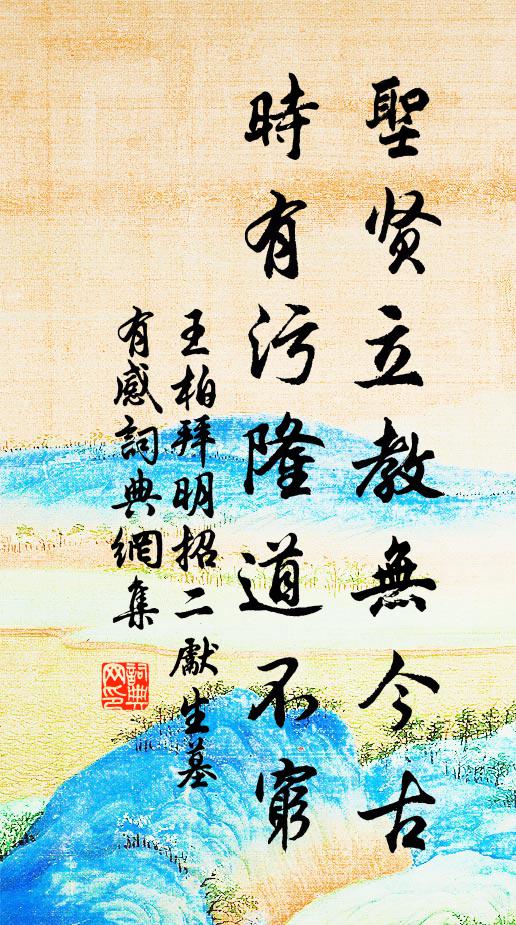 聖贤立教無今古
時有污隆道不窮
王柏拜明招二獻生墓
有感詞典網集
詞典
网印